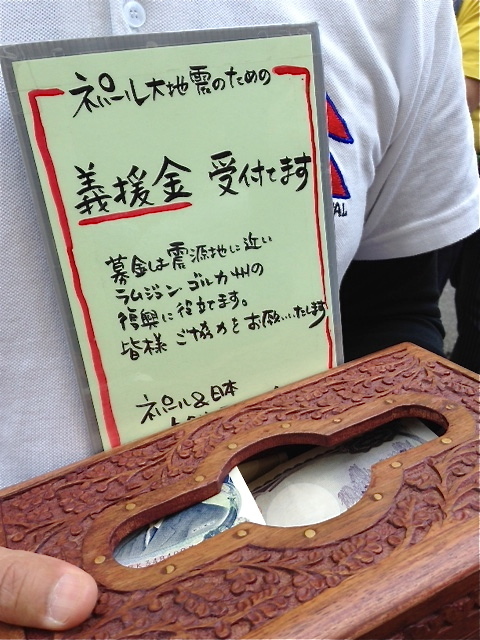 ネパール大地震のための
義援金 受付てます
募金は震源地に近い
ラムジュン・ゴルカ州の
復興に役立てます。
皆様 ご協力をお願いいたします
ネパール&日本